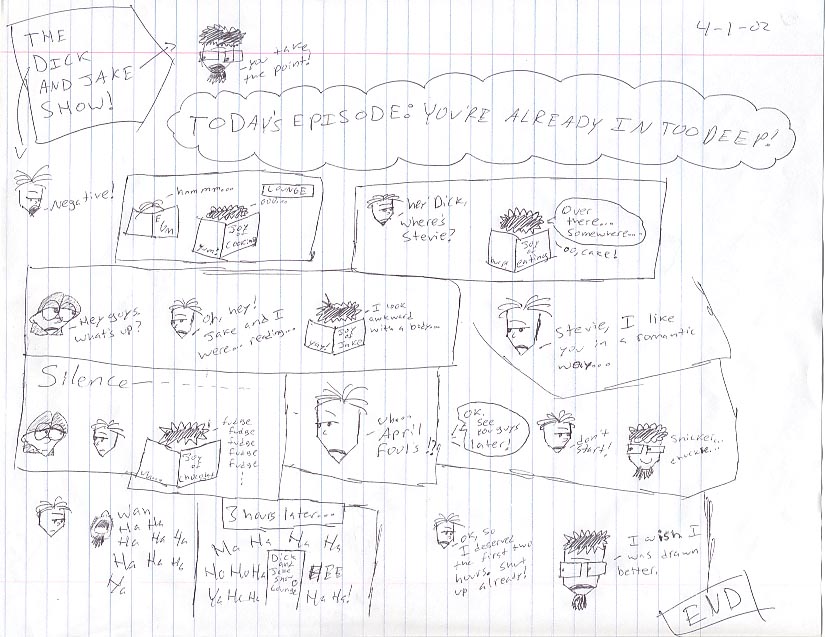 4-1-02
THE
DICK
AND JAKE
SHOW!
you take
the point!
TODAY'S EPISODE: YOU'RE ALREADY IN TOO DEEP!
Negative!
hmmmm...
LOUNGE
Joy
of
Cooking
Yum!
hey Dick,
where's
Stevie?
Over
there...
Somewhere...
oo, cake!
Joy
of
eating
Hey guys,
what's up?
Oh, hey!
Jake and I
were... reading...
I look
awkward
with a body...
yay!
Joy
of
Jake
Stevie, I like
you in a romantic
way...
Silence
fudge
fudge
fudge
fudge
fudge
Joy
of
chocolate
uhm...
April
Fouls!?
OK,
See
you guys
later!
don't
start!
snicker...
chuckle...
wah
Ha Ha
Ha Ha Ha
Ha Ha Ha
Ha
3 hours later...
Ha Ha Ha Ha
Ho Ho Ha
HEE
Ya He Ha
Ha Ha!
Dick
and
Jake
Show
Lounge
OK, so
I deserved
the first two
hours. shut
up already!
I wish I
was drawn
better.
END